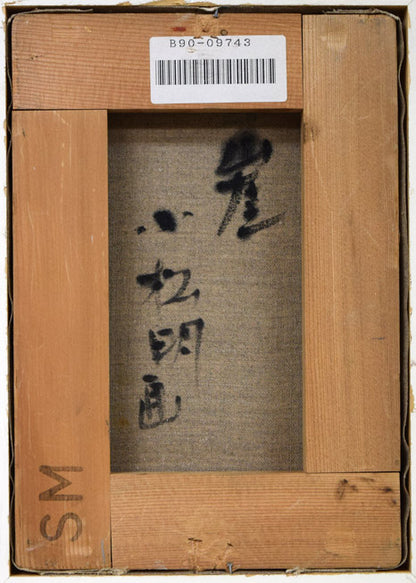 B90-09743
崖
小松明画
SM